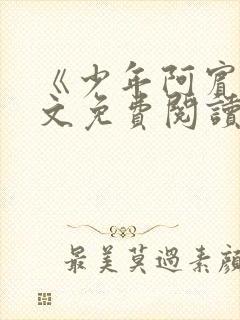 《少年阿賓
文免費閱讀
最美莫過素顏